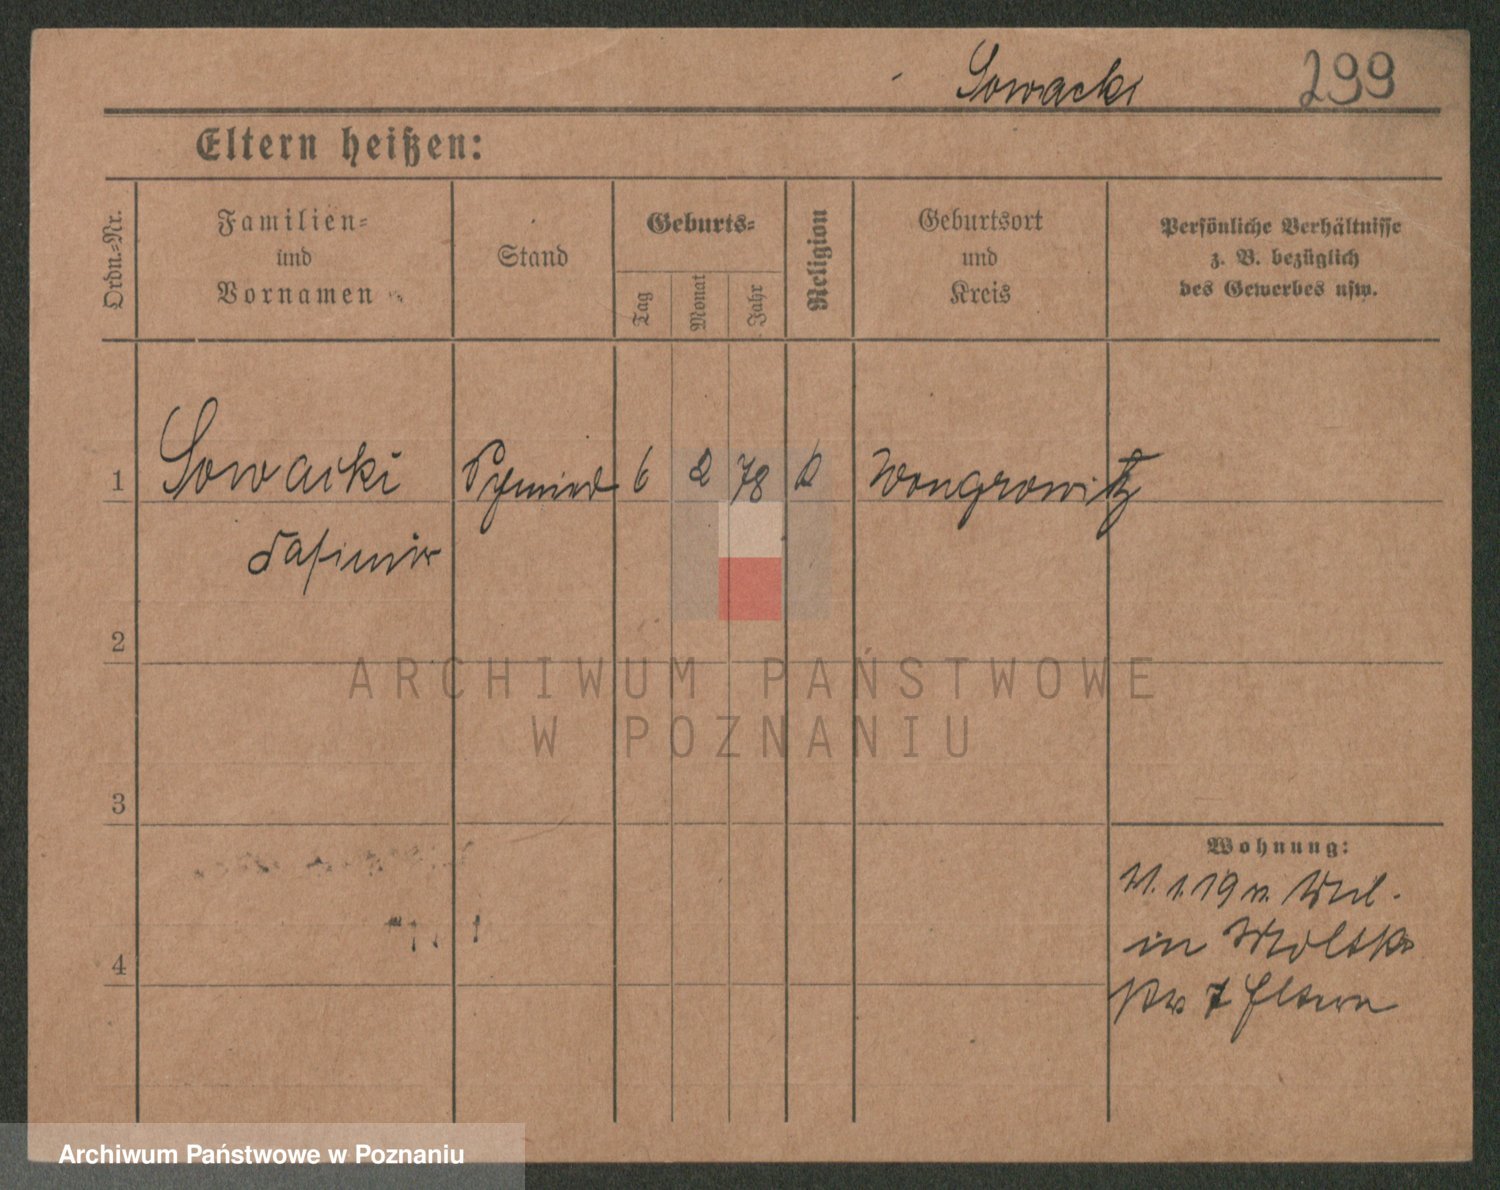 Sowacki 299
Eltern heißen:
Ordn.-Nr.
Familien-
und
Vornamen
Stand
Geburts-
Tag
Monat
Jahr
Religion
Geburtsort
und
Kreis
Persönliche Verhältnisse
z. B. bezüglich
des Gewerbes usw.
1 Sowacki Schmied 6 2 78 k Wongrowitz
Casimir
2
ARCHIWUM PAŃSTWOWE
W POZNANIU
3
Wohnung:
1.19 v.
in Moltke
7 Eltern
4
Archiwum Państwowe w Poznaniu